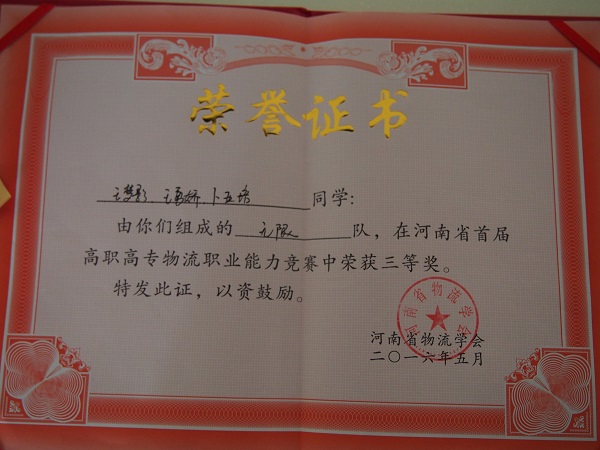 荣誉证书
同学：
由你们组成的 无限 队，在河南省首届
高职高专物流职业能力竞赛中荣获三等奖。
特发此证，以资鼓励。
河南省物流学会
河南省物流学会
二〇一六年五月